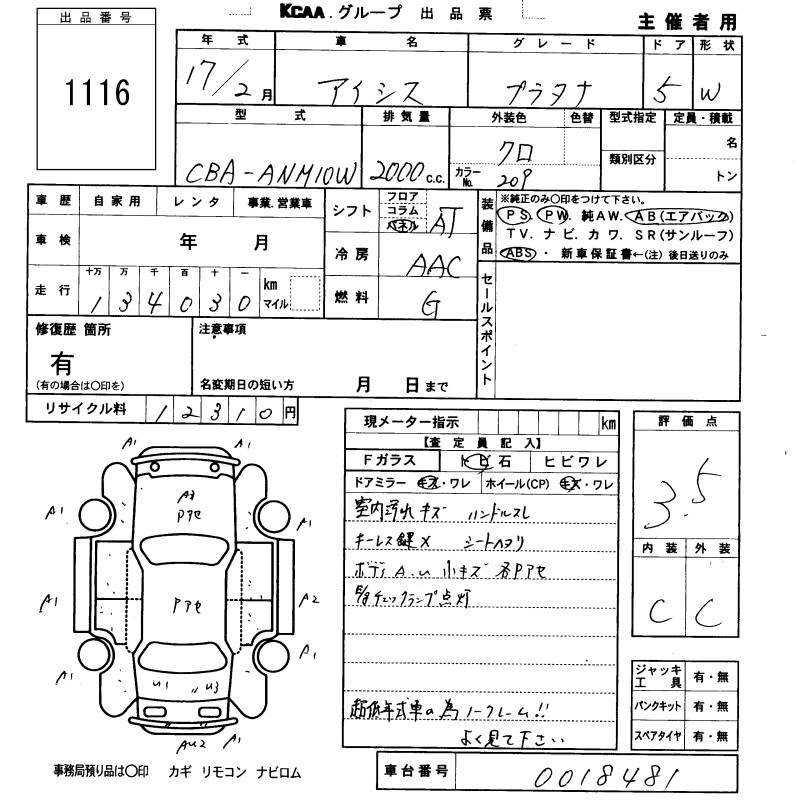 KCAA.グループ 出品票
主催者用
出品番号
1116
年式 車名 グレード ドア 形状
17/2月 アイシス プラタナ 5 W
型式 排気量 外装色 色替 型式指定 定員・積載
CBA-ANM10W 2000c.c. クロ 類別区分 名
カラーNo. 209 トン
車歴 自家用 レンタ 事業.営業車
車検 年 月
走行 十万 万 千 百 十 一
134030 km マイル
シフト フロア コラム パネル AT
冷房 AAC
燃料 G
装備品
※純正のみ○印をつけて下さい。
PS. PW. 純AW. AB(エアバック)
TV. ナビ. カワ. SR(サンルーフ)
ABS ・ 新車保証書←(注) 後日送りのみ
セールスポイント
修復歴 箇所
有
(有の場合は○印を)
注意事項
名変期日の短い方 月 日まで
リサイクル料 12310円
現メーター指示 km
【査定員記入】
Fガラス トビ石 ヒビワレ
ドアミラー キズ・ワレ ホイール(CP) キズ・ワレ
室内汚れキズ ハンドルスレ
キーレス鍵× シートヘタリ
ボディA.u 小キズ 各Pアセ
チェックランプ点灯
超低年式車の為ノークレーム!!
よく見て下さい
評価点
3.5
内装 外装
C C
ジャッキ工具 有・無
パンクキット 有・無
スペアタイヤ 有・無
A1 A1
A3
Pアセ
A1 A1
Pアセ
A1 A2
A1 A1
u1 u3
Au2 A1
事務局預り品は○印 カギ リモコン ナビロム
車台番号 0018481